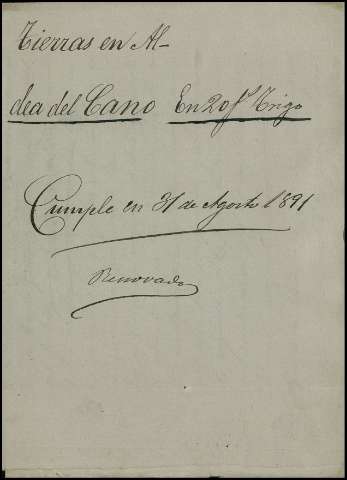 Tierras en Al-
dea del Cano En 20 f.s Trigo
Cumple en 31 de Agosto 1891
Renovado